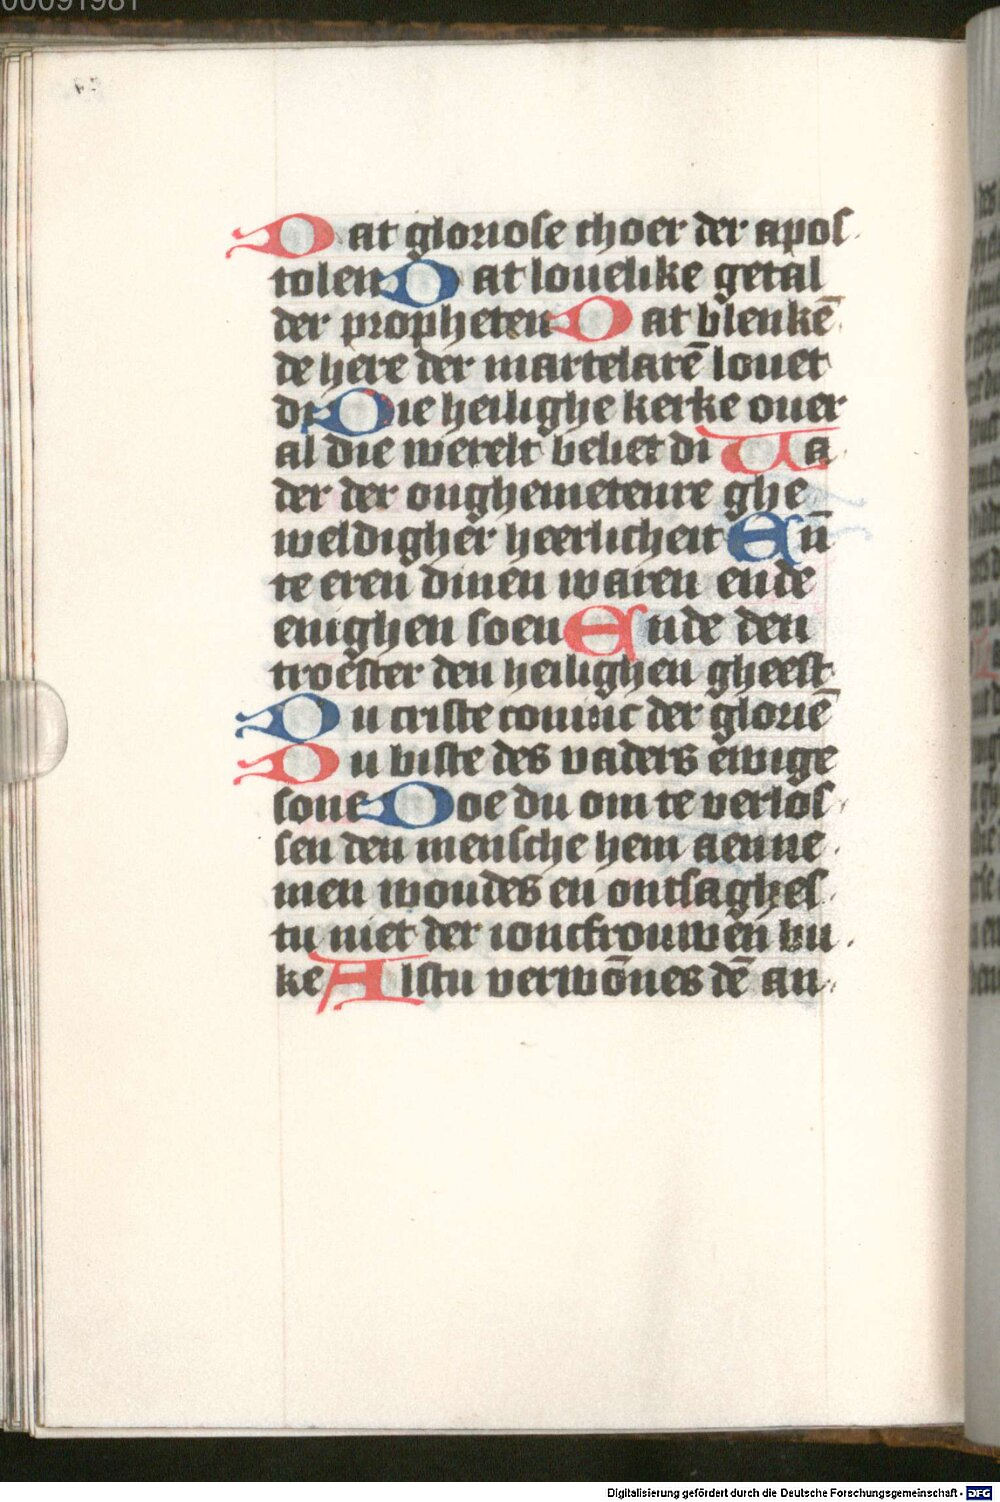 00091981
Dat gloriose choer der apos
tolen Dat louelike getal
der propheten Dat blenkē
de here der martelarē louet
di Die heilighe kerke ouer
al die werelt beliet di Ua
der der onghemetenre ghe
weldigher heerlicheit En̄
te eren dinen waren ende
enighen soen Ende den
troester den heilighen gheest
Du criste coninc der gloriē
Du biste des vaders ewige
sone Doe du om te verlos
sen den mensche hem aenne
men woudes en ontsaghes
tu niet der ioncfrouwen bu
ke Alstu verwōnes dē an
Digitalisierung gefördert durch die Deutsche Forschungsgemeinschaft - DFG